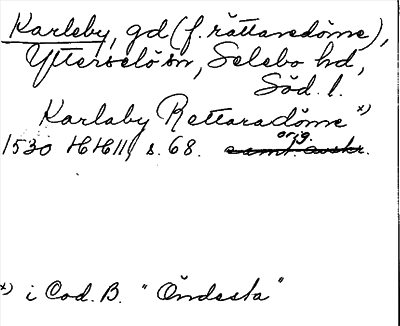 Karleby, gd (f. rättaredöme),
Ytterselö sn, Selebo hd,
Söd. l.
Karlaby Rettaradöme x)
1530 HH II, s. 68. samt. avskr. orig.
x) i Cod. B. "Öndesta"